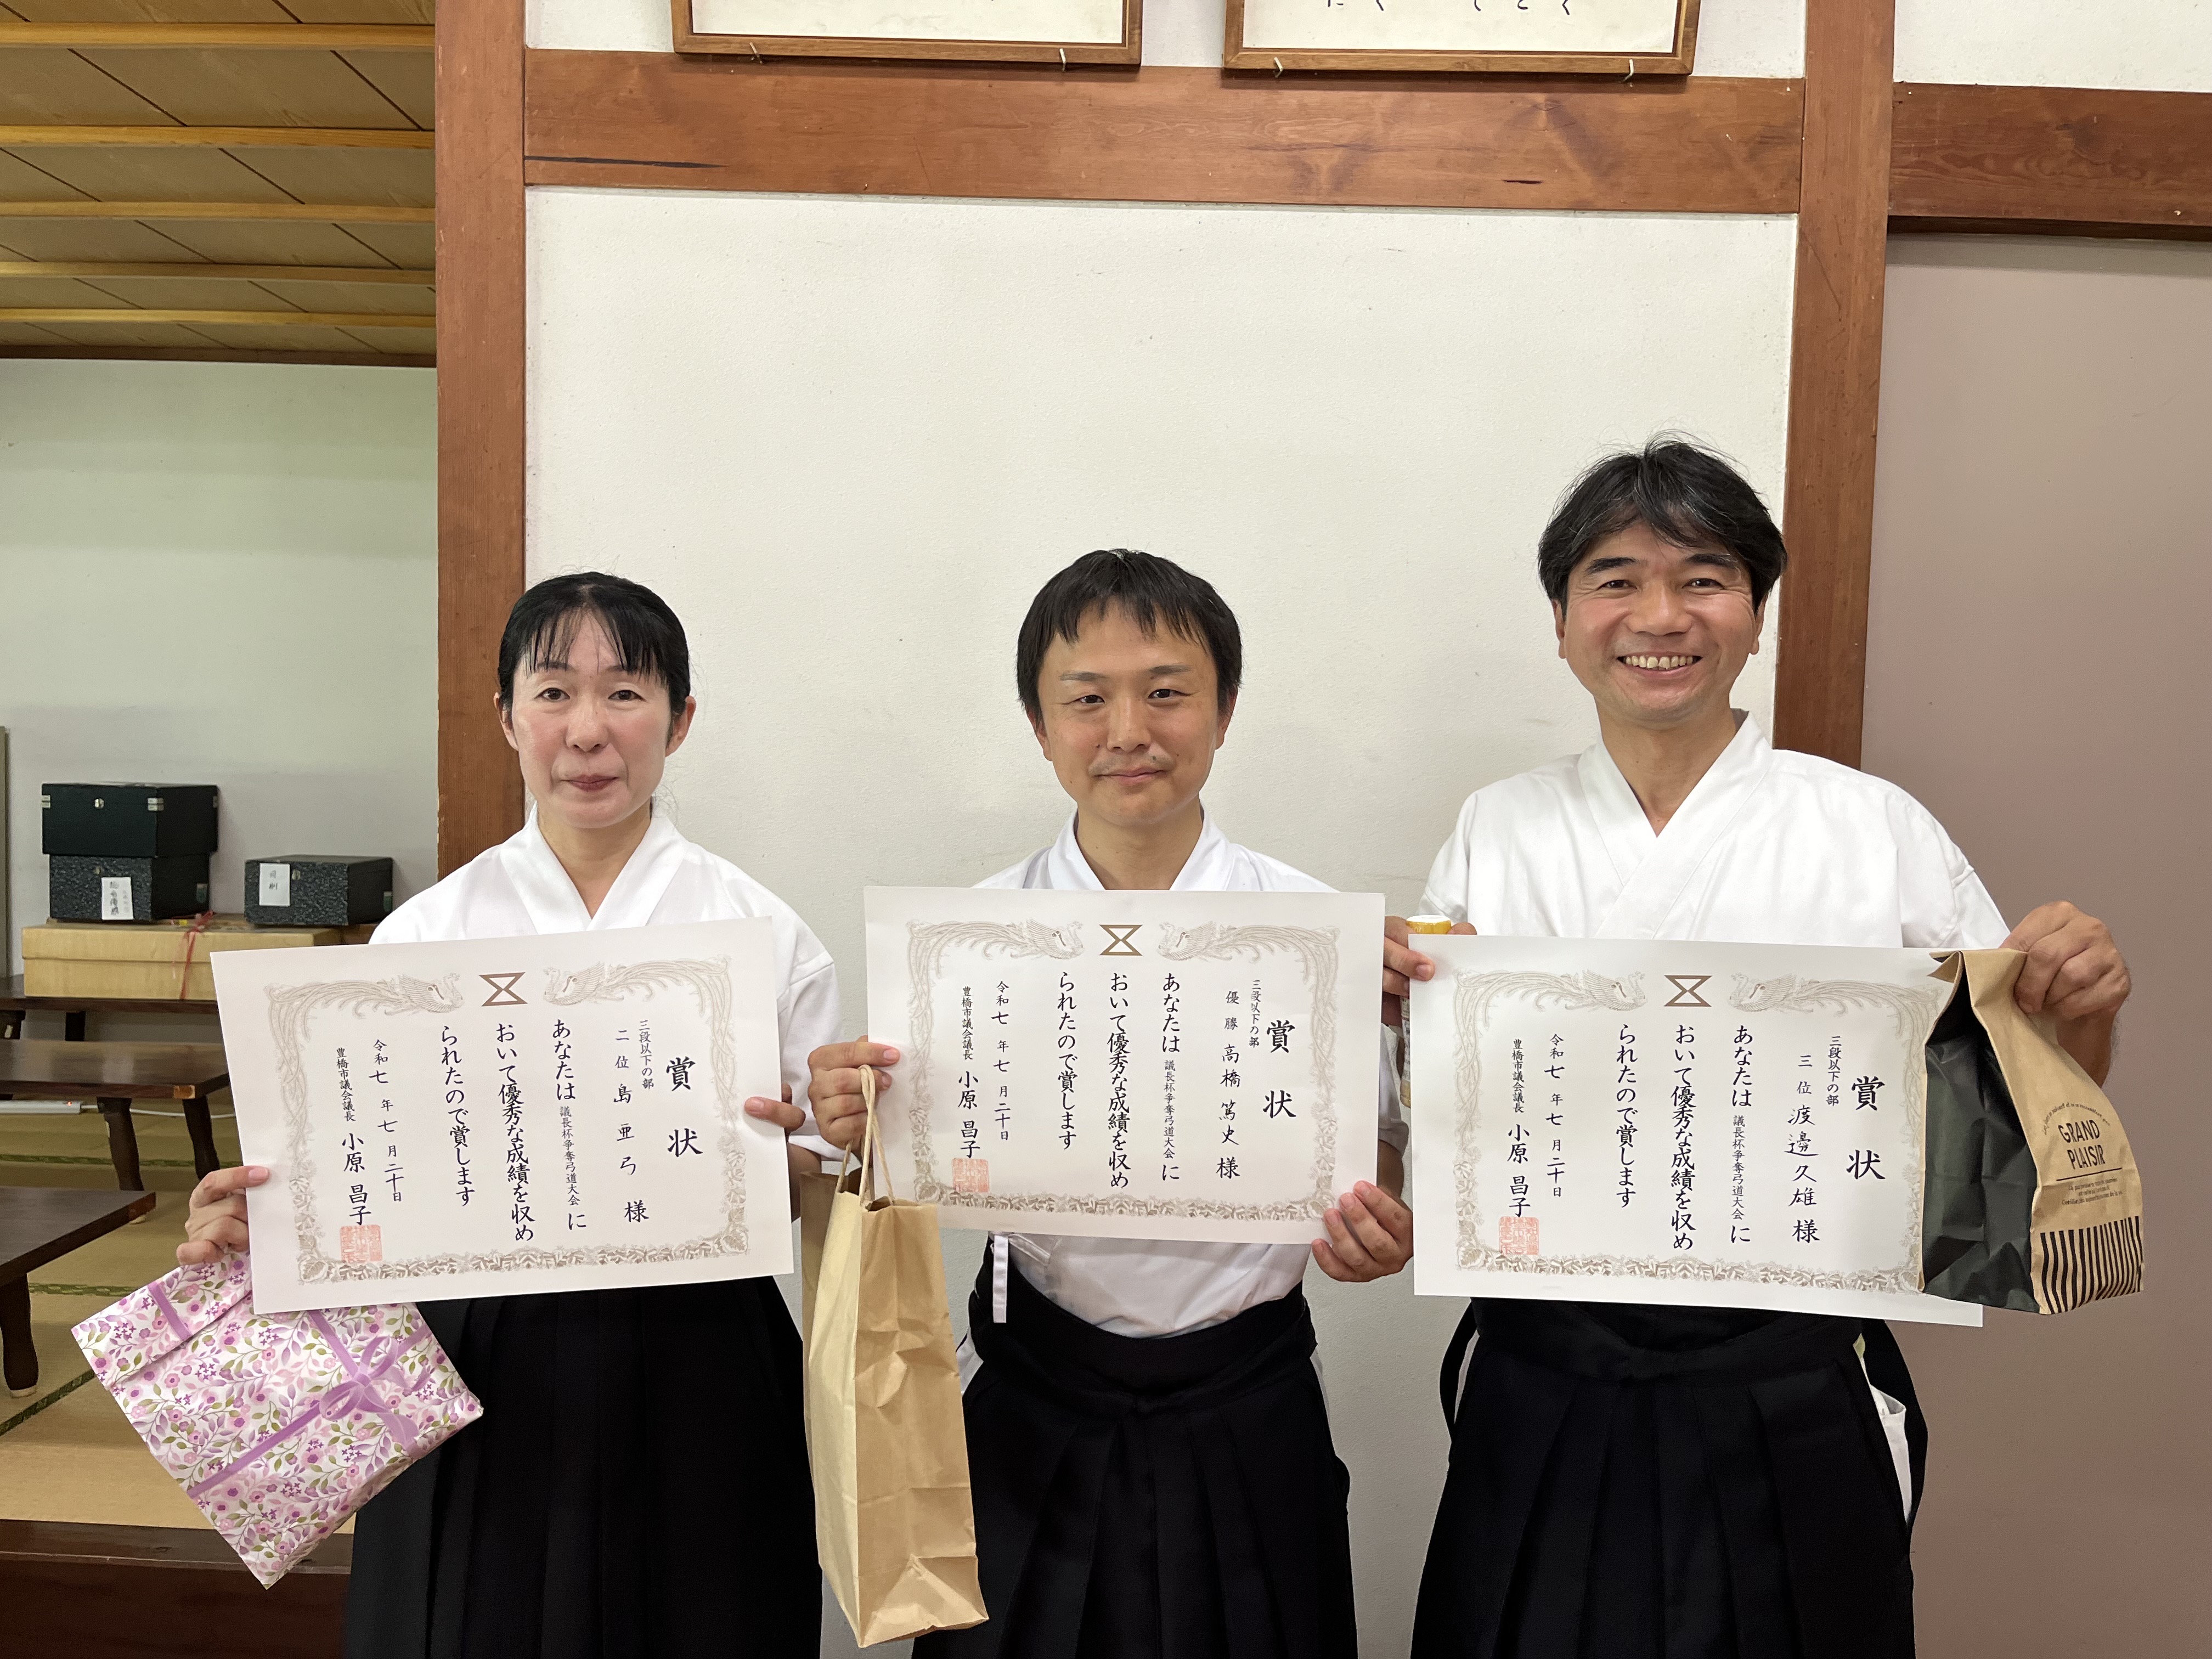 賞状
三段以下の部
二位 島 亜弓 様
あなたは 議長杯争奪弓道大会 に
おいて優秀な成績を収め
られたので賞します
令和七年七月二十日
豊橋市議会議長 小原 昌子
賞状
三段以下の部
優勝 高橋 篤史 様
あなたは 議長杯争奪弓道大会 に
おいて優秀な成績を収め
られたので賞します
令和七年七月二十日
豊橋市議会議長 小原 昌子
賞状
三段以下の部
三位 渡邊 久雄 様
あなたは 議長杯争奪弓道大会 に
おいて優秀な成績を収め
られたので賞します
令和七年七月二十日
豊橋市議会議長 小原 昌子
GRAND
PLAISIR